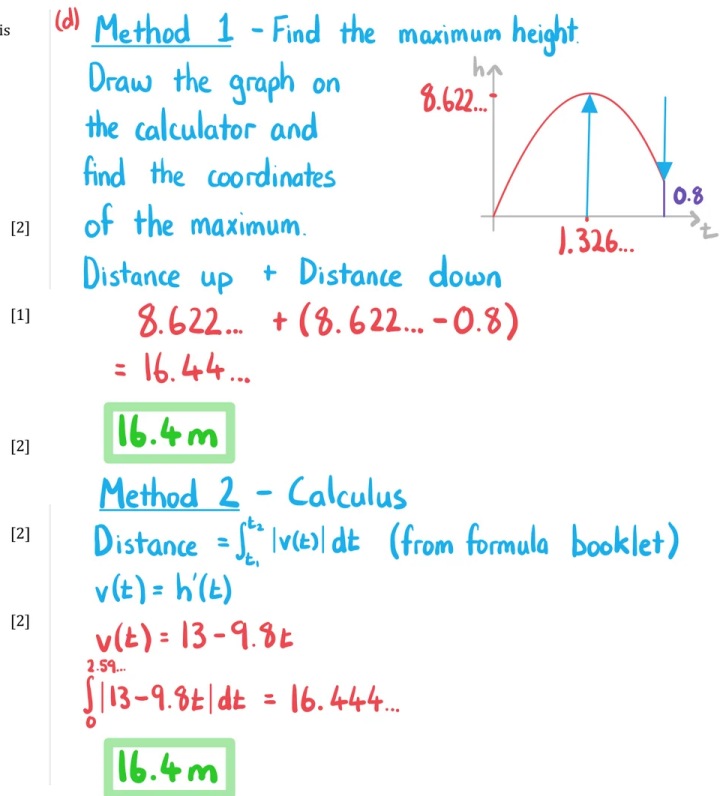 is
(d) Method 1 - Find the maximum height.
Draw the graph on
the calculator and
find the coordinates
of the maximum.
h
8.622...
0.8
t
1.326...
[2]
Distance up + Distance down
[1]
8.622... + (8.622... - 0.8)
= 16.44...
16.4 m
[2]
Method 2 - Calculus
[2]
Distance = ∫_{t₁}^{t₂} |v(t)| dt (from formula booklet)
v(t) = h'(t)
[2]
v(t) = 13 - 9.8t
∫_{0}^{2.59...} |13 - 9.8t| dt = 16.444...
16.4 m